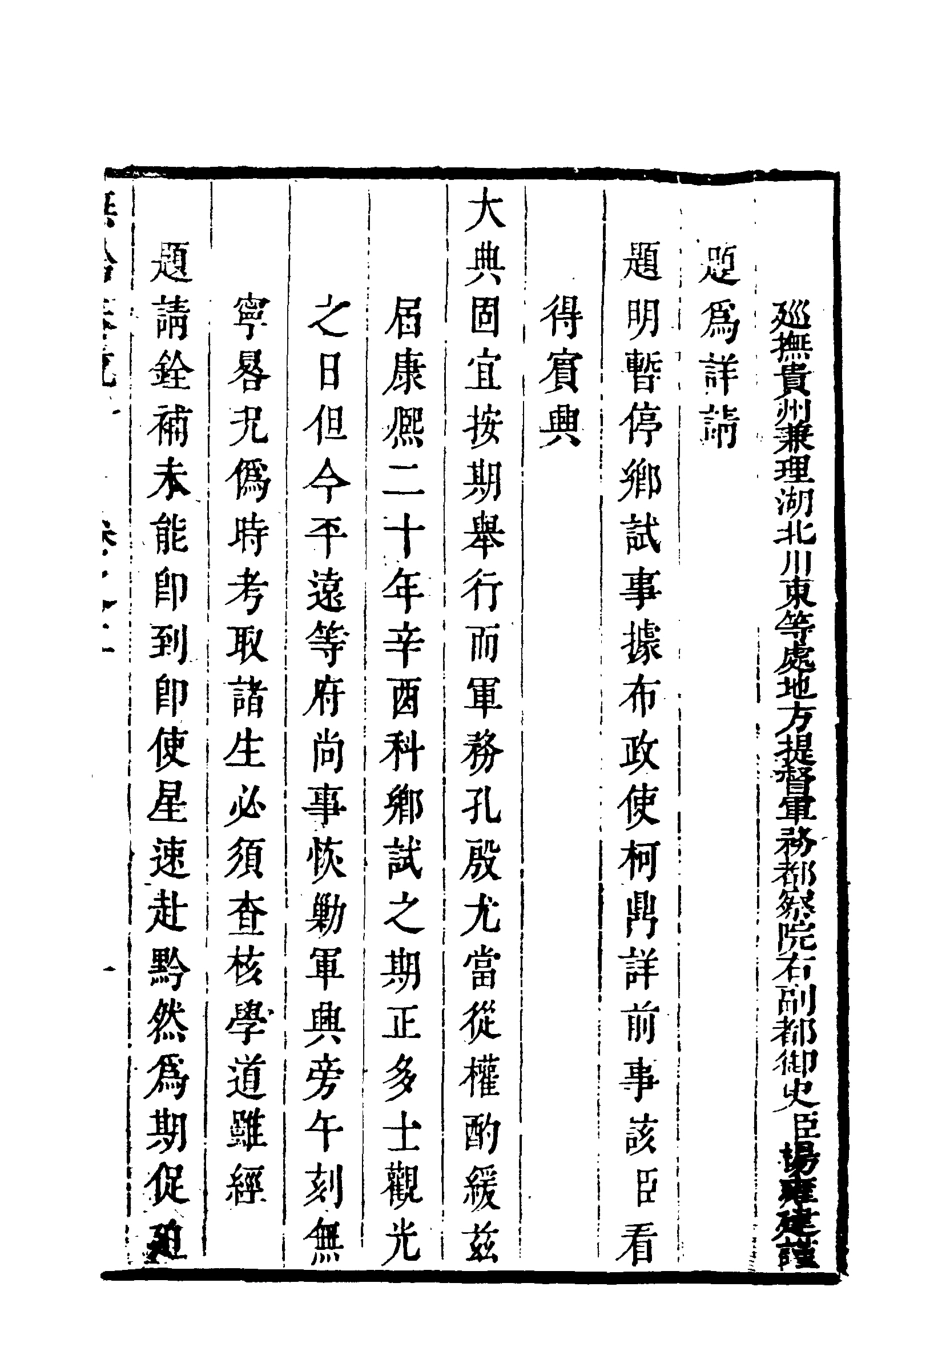 廵撫貴州兼理湖北川東等處地方提督軍務都察院右副都御史臣楊雍建謹
題爲詳請
題明暫停鄉試事據布政使柯鼎詳前事該臣看
得賓興
大典固宜按期舉行而軍務孔殷尤當從權酌緩兹
届康熈二十年辛酉科鄉試之期正多士觀光
之日但今平遠等府尚事恢勦軍興旁午刻無
寧晷況僞時考取諸生必須查核學道雖經
題請銓補未能卽到卽使星速赴黔然爲期促廹
撫黔奏䟽 卷之二 一